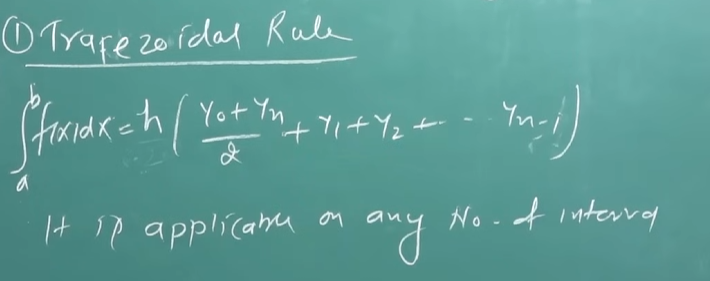 ① Trapezoidal Rule
∫ₐᵇ f(x)dx = h ( (y₀ + yₙ)/2 + y₁ + y₂ + - - - yₙ₋₁ )
It is applicable on any No. of interval